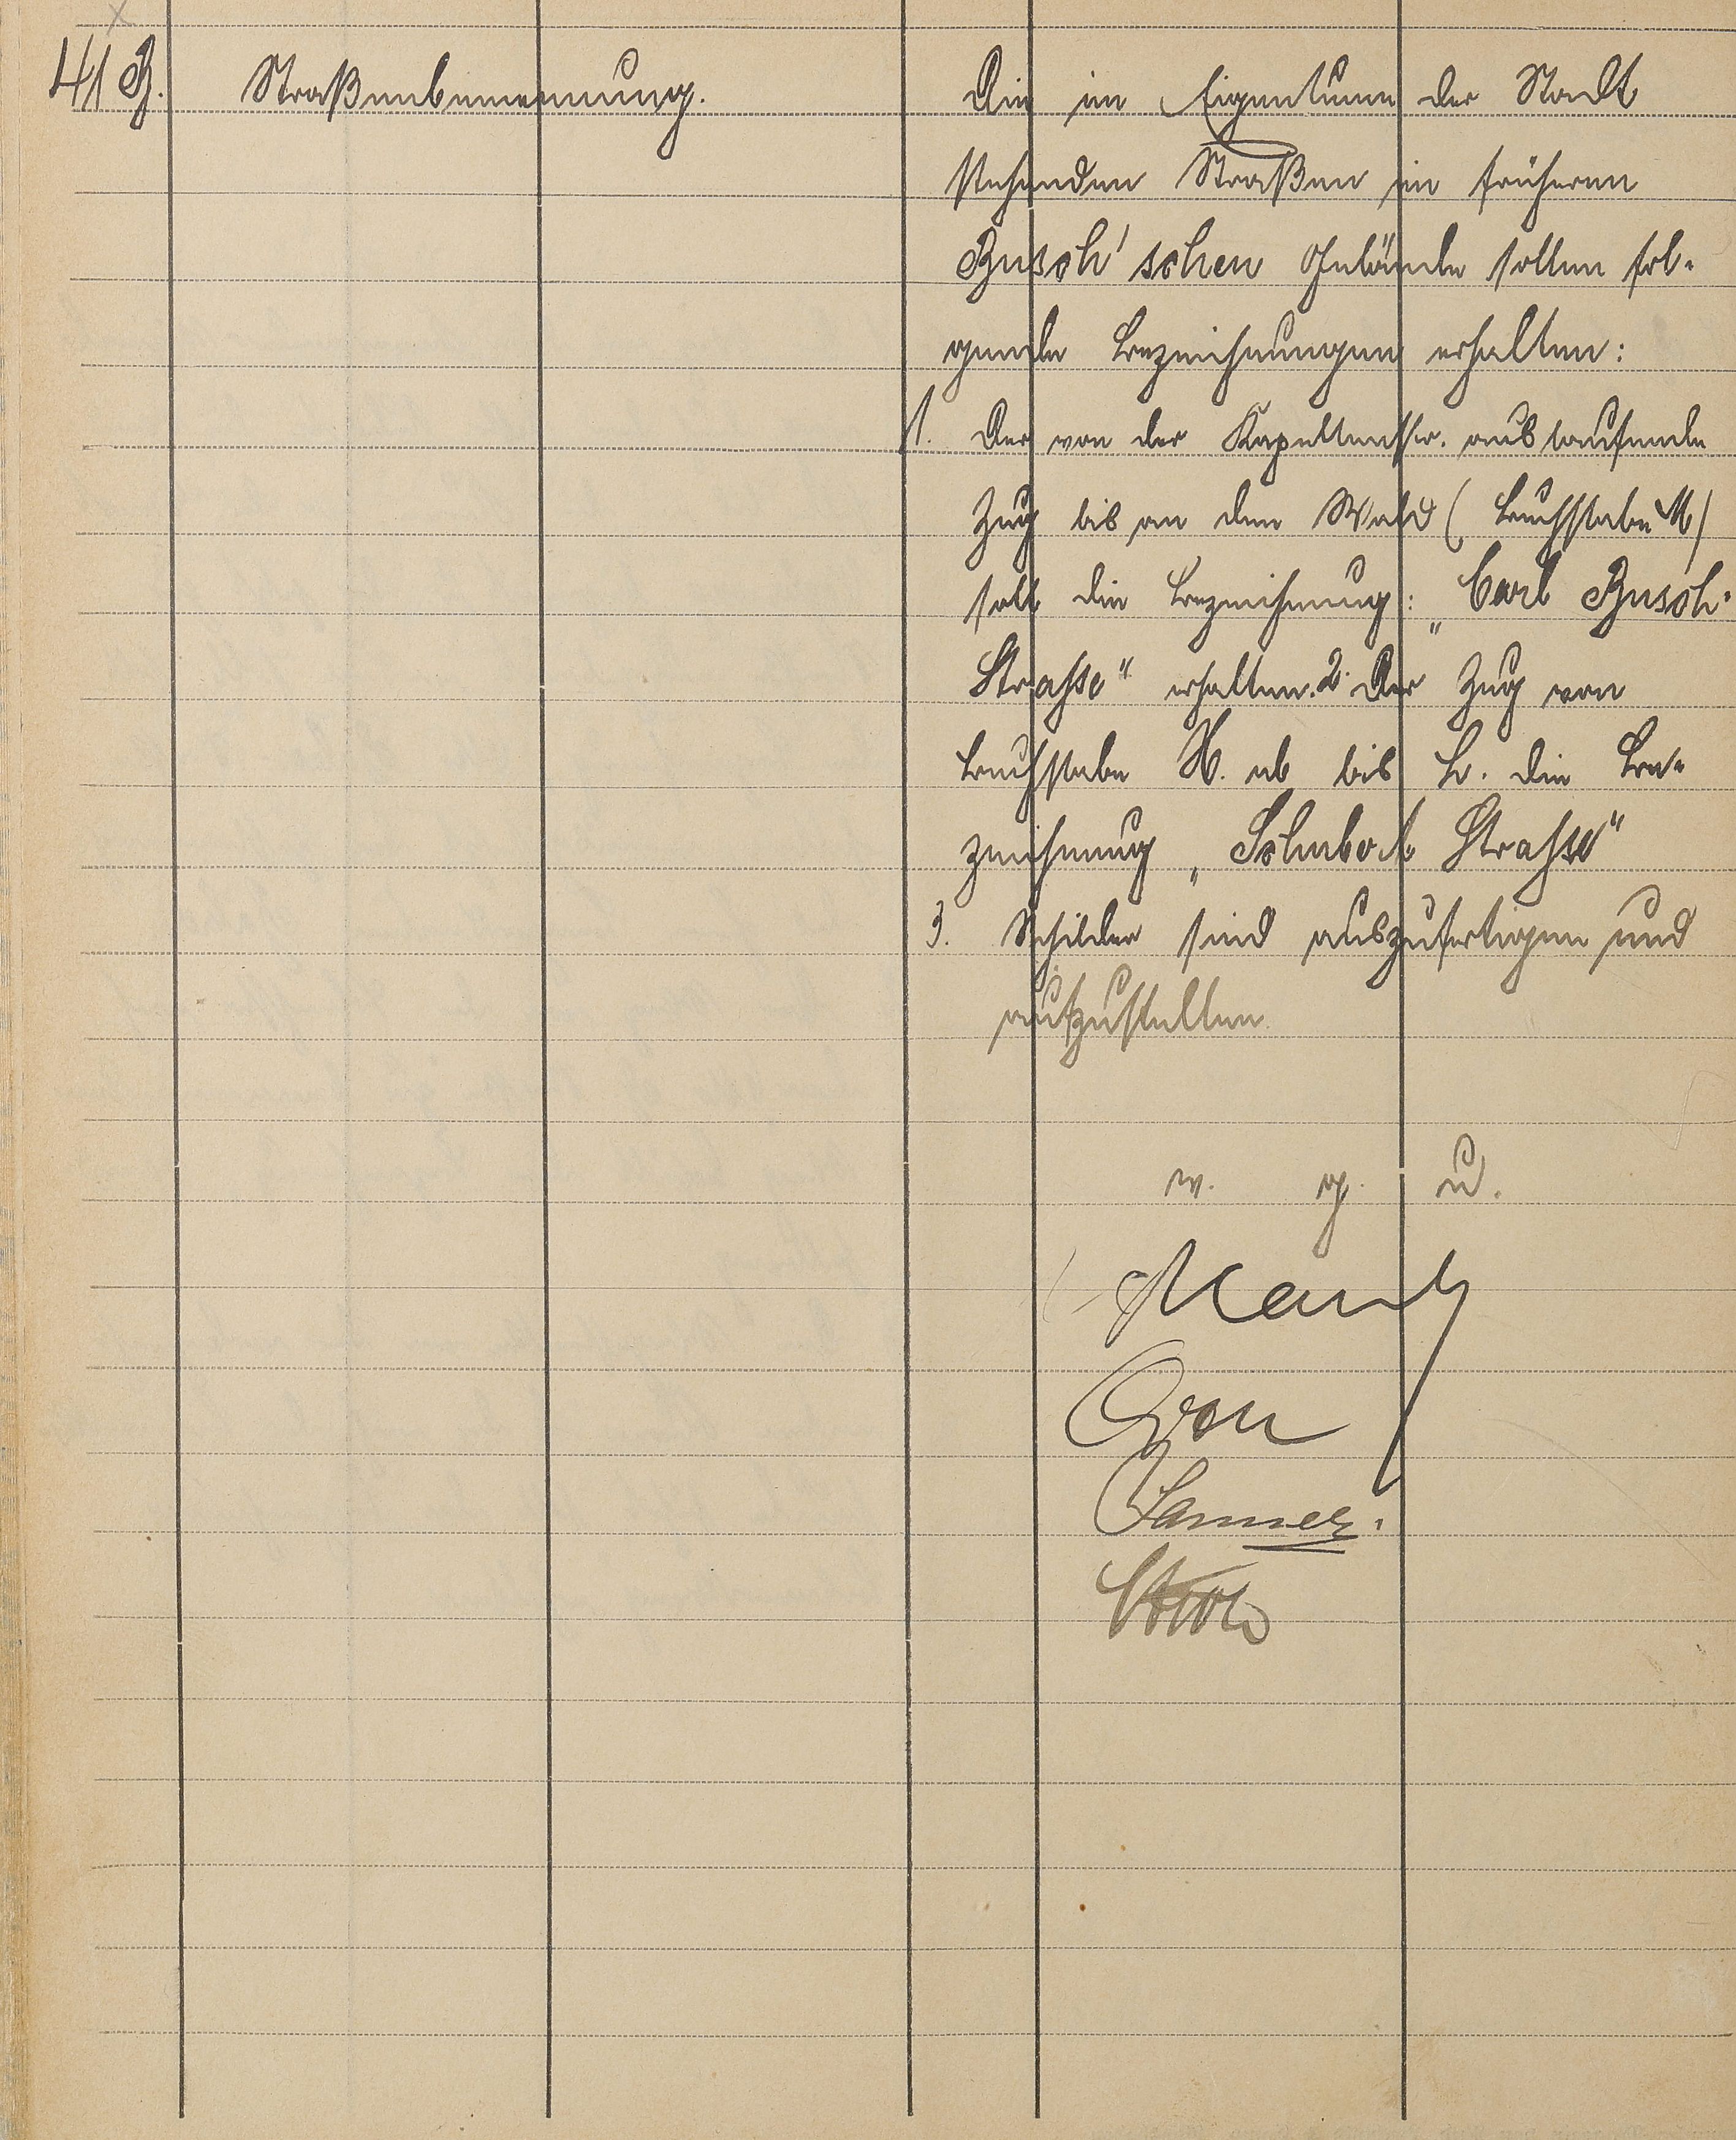 41 B. Straßenbenennung.
Die im Eigentum der Stadt
stehenden Straßen im früheren
Busch'schen Gelände sollen fol-
gende Bezeichnungen erhalten:
1. Der von der Kapellenstr. auslaufende
Zug bis an den Wald (Buchstabe M)
soll die Bezeichnung: „Carl Busch-
Strasse" erhalten. 2. Der Zug von
Buchstabe H. ab bis L. die Be-
zeichnung „ Strasse"
3. Schilder sind auszufertigen und
aufzustellen.
v. g. u.